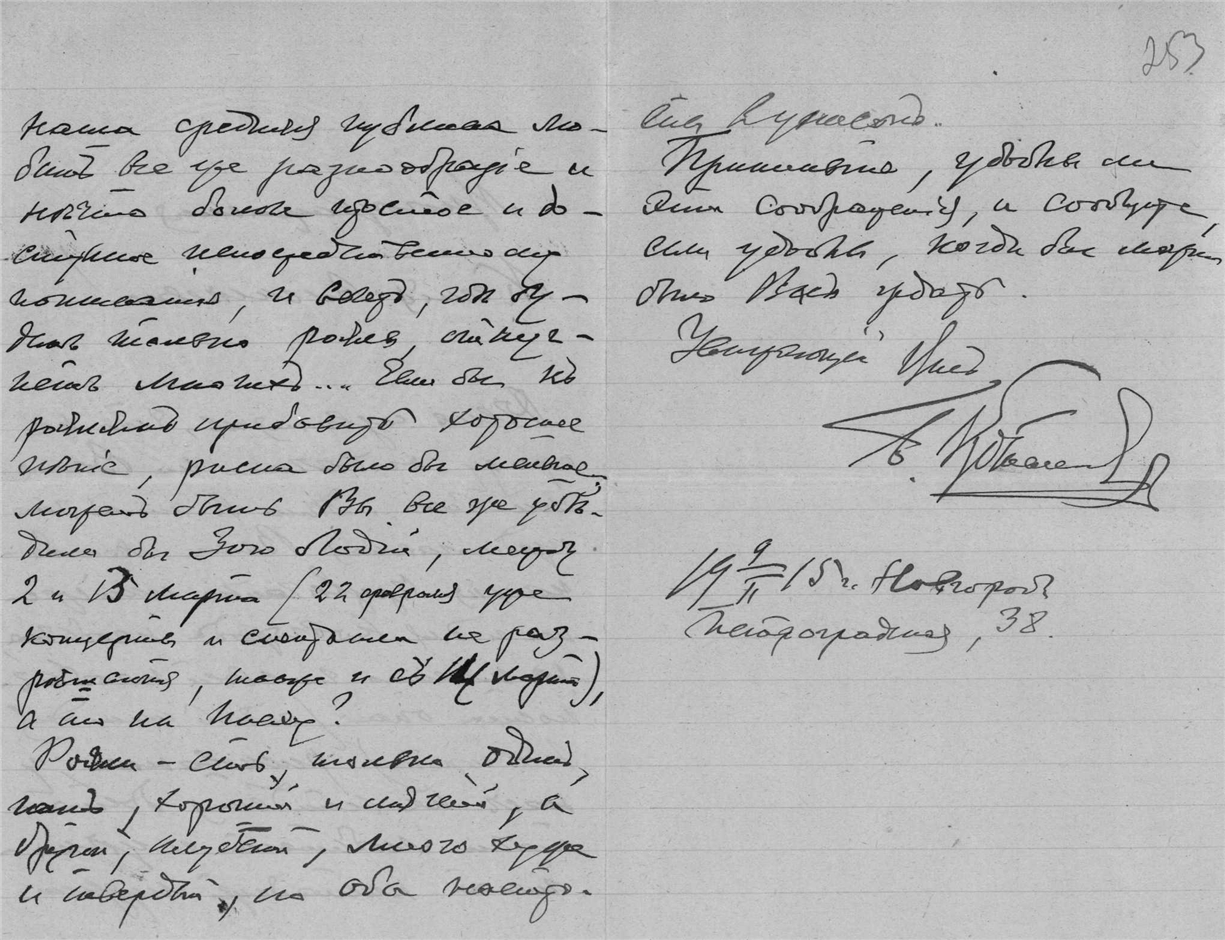 наша средняя публика лю-
битъ все же разнообразіе и
нѣчто болѣе простое и до-
ступное непосредственному
пониманію, и вечеръ, гдѣ бу-
детъ только рояль, отпуг-
нетъ многихъ... Если бы къ
роялямъ прибавить хорошее
пѣніе, риска было бы меньше.
Можетъ быть Вы все же убѣ-
дили бы Зою Лодій, между
2 и 15 марта (22 февраля уже
концерты и спектакли не раз-
рѣшаются, также и съ марта),
а то на Пасху?
Рояли – есть, только одинъ,
нашъ, хорошій и мягкій, а
другой, клубный, много хуже
и твердый, но оба настро-
253
ены
Примите, удобны ли
эти соображенія, и сообщите,
если удобны, когда бы можно
было Васъ ждать.
Уважающій Васъ
19 9/II 15 г. Новгородъ
Петроградская, 38.